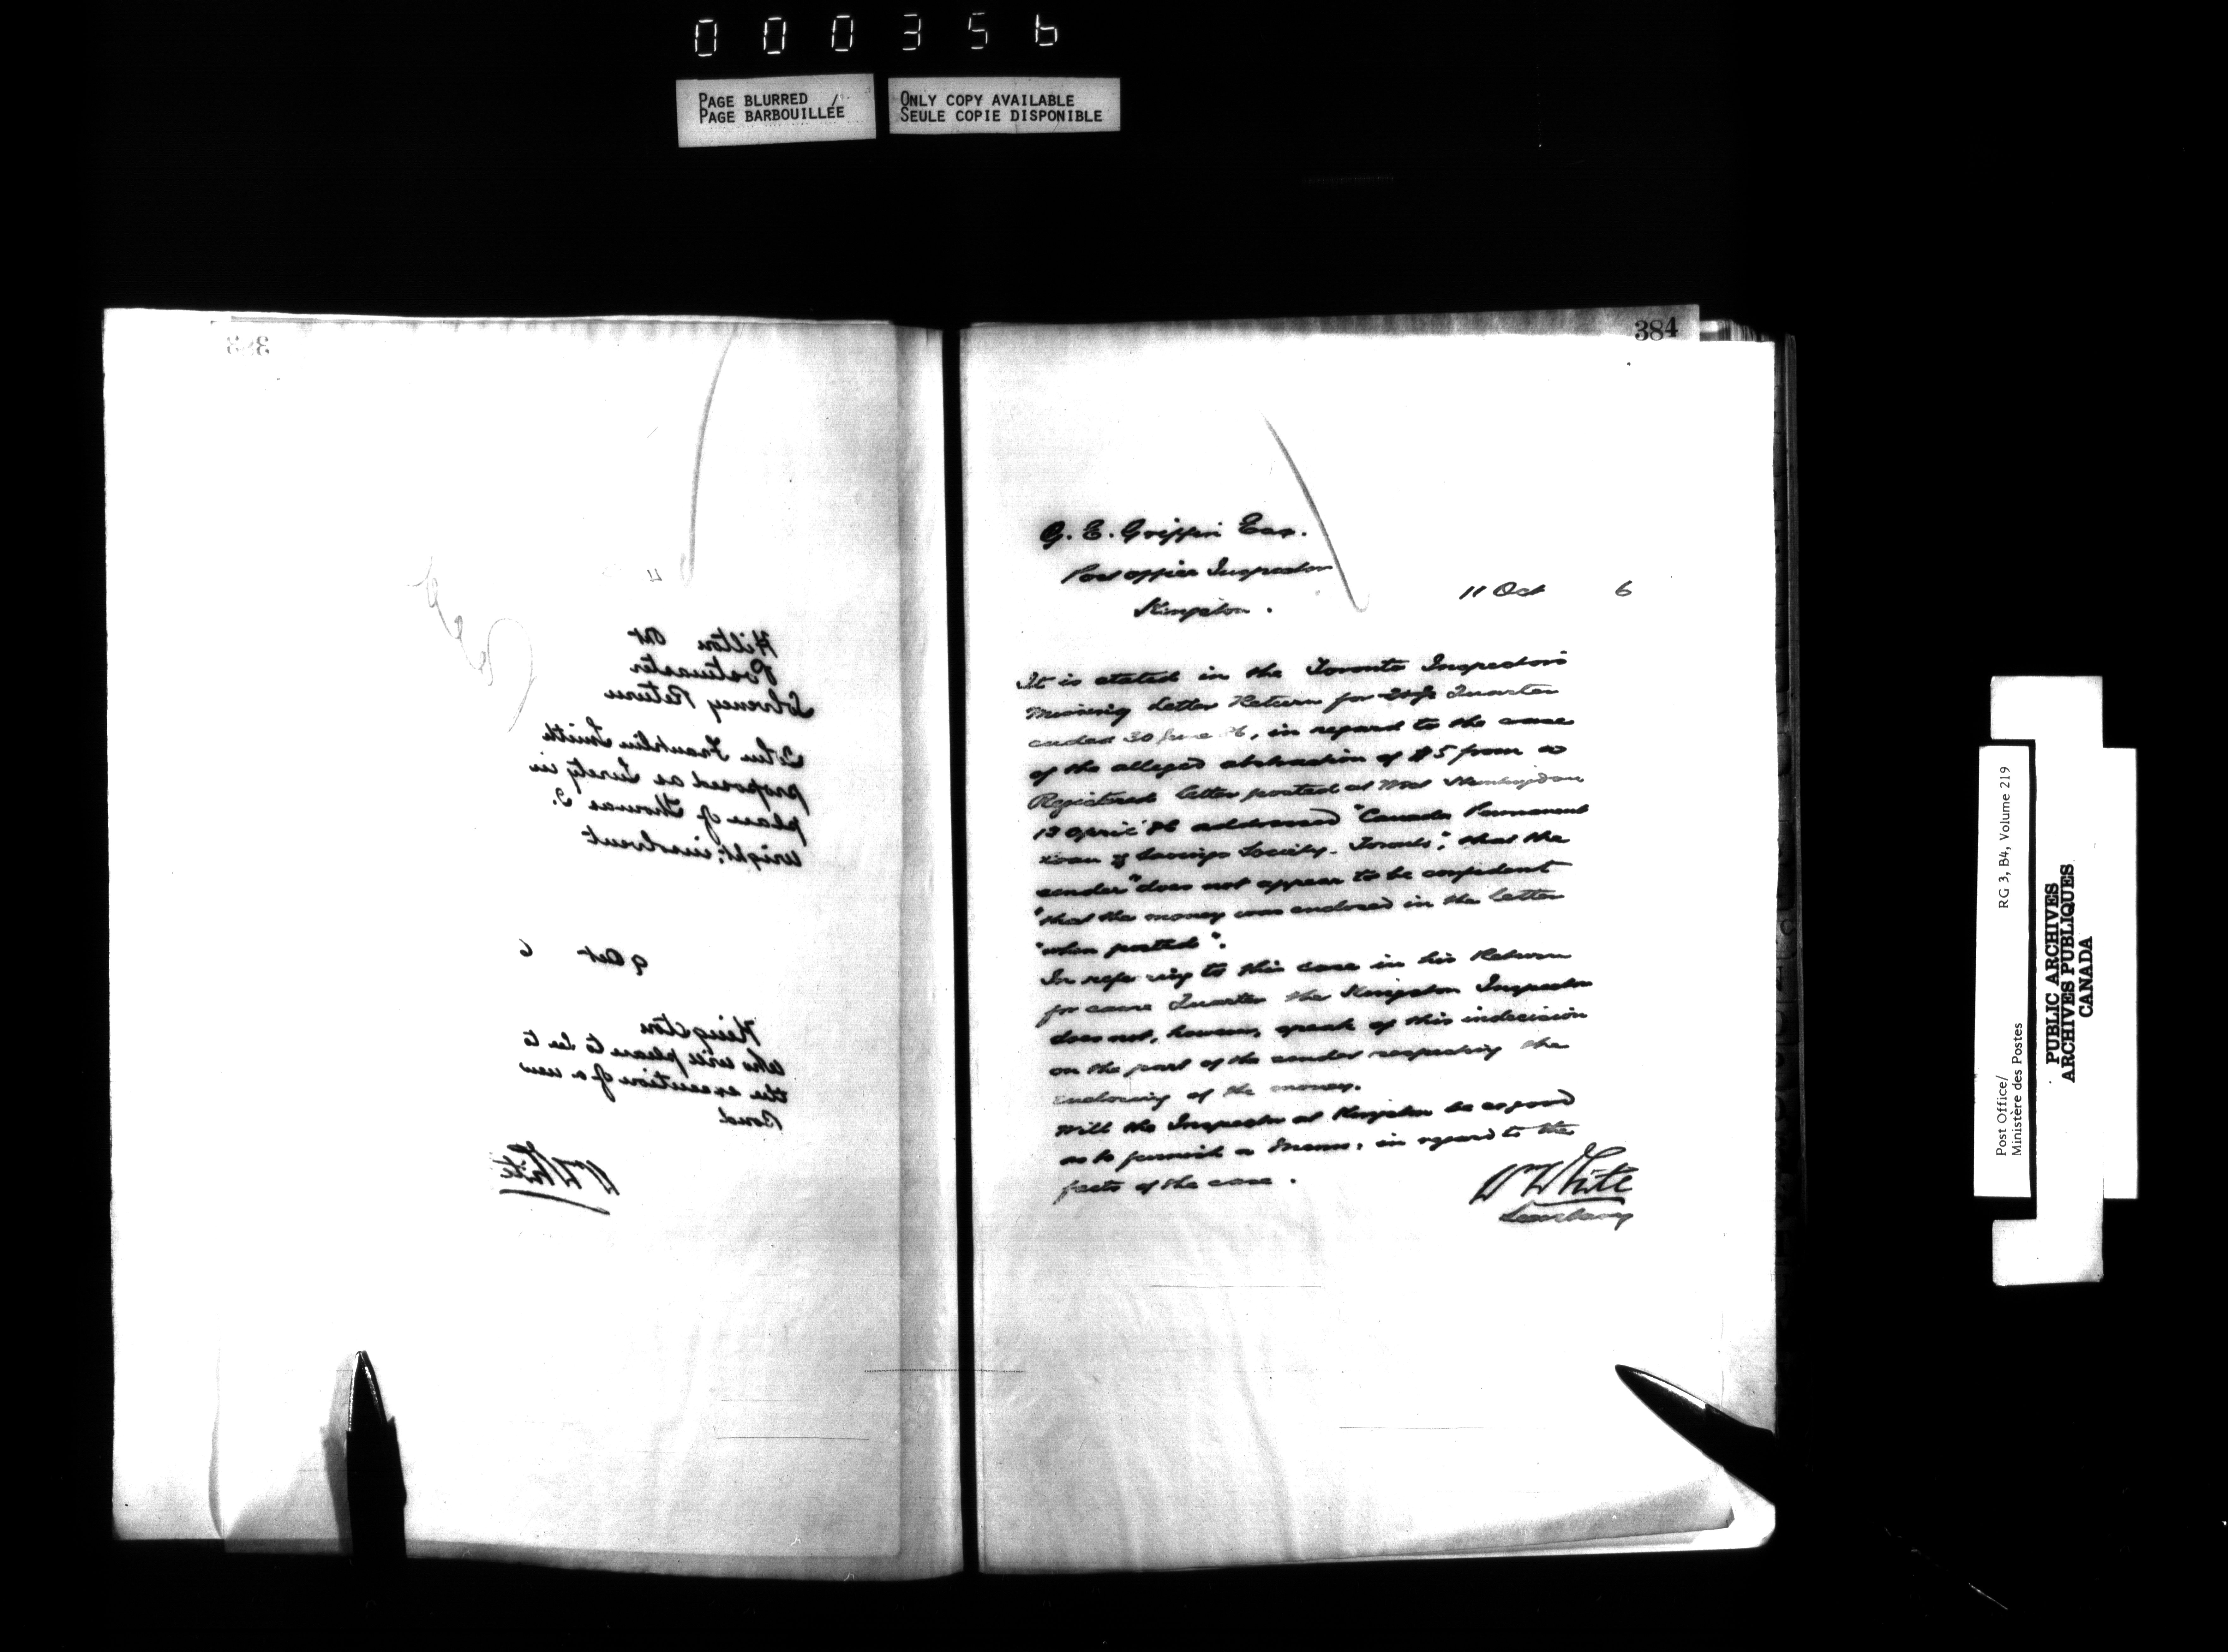 000356
PAGE BLURRED
PAGE BARBOUILLÉE
ONLY COPY AVAILABLE
SEULE COPIE DISPONIBLE
383
Copy
Hilton Ont
Postmaster
Solvency Return
John Franklin Smith
proposed as Surety in
place of Thomas J.
Wright; insolvent
9 Oct 6
Kingston
Who will please to see to
the execution of a new
Bond
W White
384
G. E. Griffin Esq.
Post office Inspector
Kingston.
11 Oct 6
It is stated in the Toronto Inspector's
Missing Letter Return for Quarter
ended 30 June 86, in regard to the case
of the alleged abstraction of $5 from a
Registered letter posted at West Huntingdon
13 April 86 addressed "Canada Permanent
Loan & Savings Society. Toronto", that the
sender "does not appear to be confident
"that the money was enclosed in the letter
"when posted".
In referring to this case in his Return
for same Quarter the Kingston Inspector
does not, however, speak of this indecision
on the part of the sender respecting the
enclosing of the money.
Will the Inspector at Kingston be as good
as to furnish a Memo: in regard to the
facts of the case.
W White
Secretary
Post Office/
Ministère des Postes
RG 3, B4, Volume 219
PUBLIC ARCHIVES
ARCHIVES PUBLIQUES
CANADA